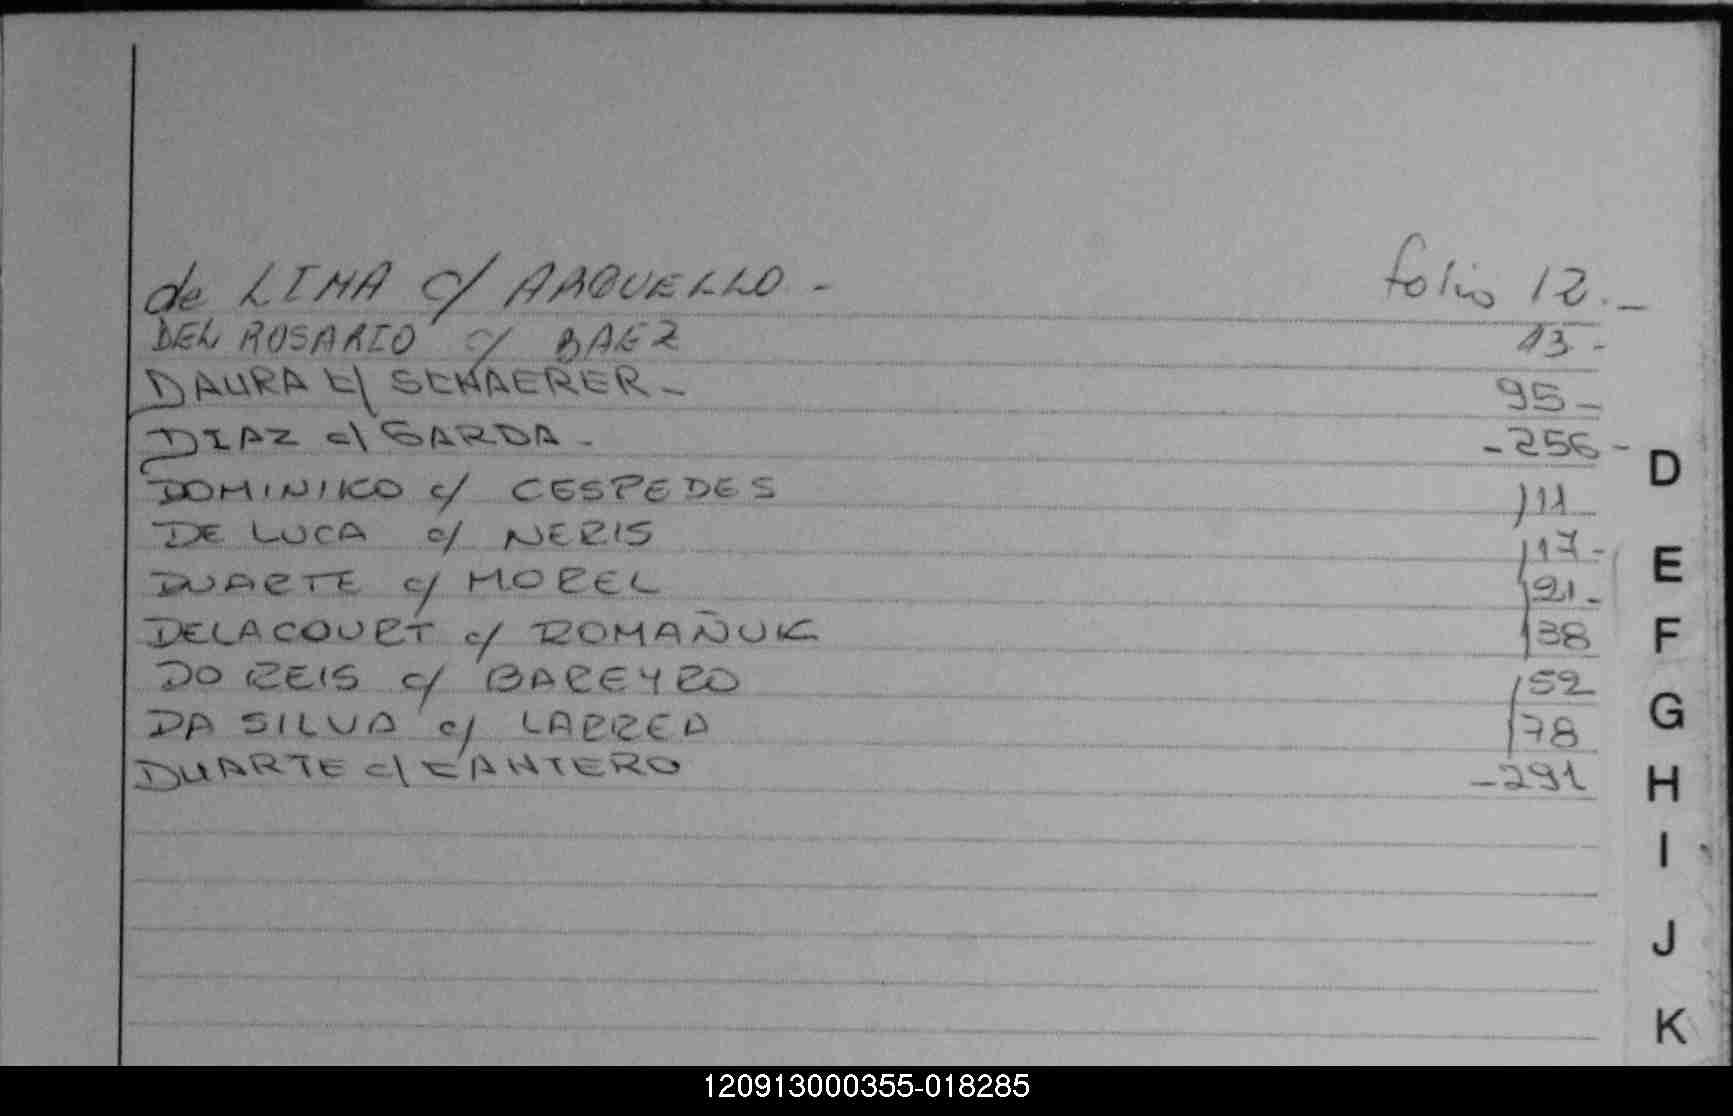 de LIMA c/ ARQUELLO.- folio 12.-
DEL ROSARIO c/ BAEZ 13-
DAURA c/ SCHAERER- 95-
DIAZ c/ GARDA- -256-
DOMINIKO c/ CESPEDES 111
DE LUCA c/ NERIS 117-
DUARTE c/ MOREL 121-
DELACOURT c/ ROMAÑUK 138
DO REIS c/ BAREYRO 152
DA SILVA c/ LARREA 178
DUARTE c/ CANTERO -291
D
E
F
G
H
I
J
K
120913000355-018285